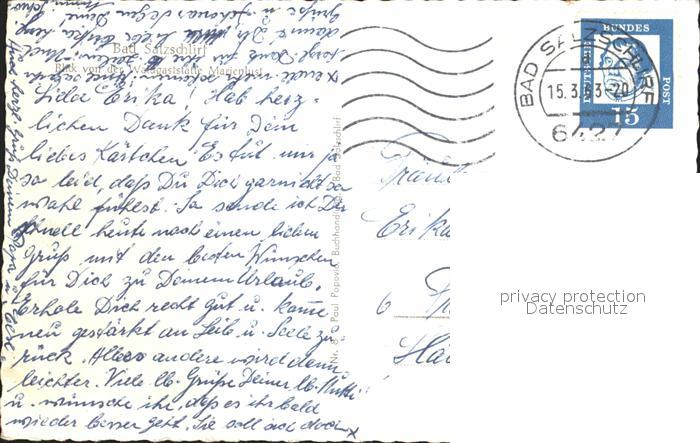 Bad Salzschlirf
Blick von der Waldgaststätte Marienlust
Liebe Erika! Hab herz-
lichen Dank für Dein
liebes Kärtchen. Es tut mir ja
so leid, daß Du Dich garnicht so
wohl fühlst. Da sende ich Dir
schnell heute noch einen lieben
Gruß mit den besten Wünschen
für Dich zu Deinem Urlaub.
Erhole Dich recht gut u. komme
neu gestärkt an Leib u. Seele zu-
rück. Alles andere wird dann
leichter. Viele lb. Grüße Deiner lb. Mutti
u. wünsche ihr, daß es ihr bald
wieder besser geht. Sie soll sich doch
Nr. 8 Paul Popovic Buchhandlung Bad Salzschlirf
Erika
6
DEUTSCHE BUNDES POST
15
BAD SALZSCHLIRF
15.3.63-20
6427
privacy protection
Datenschutz